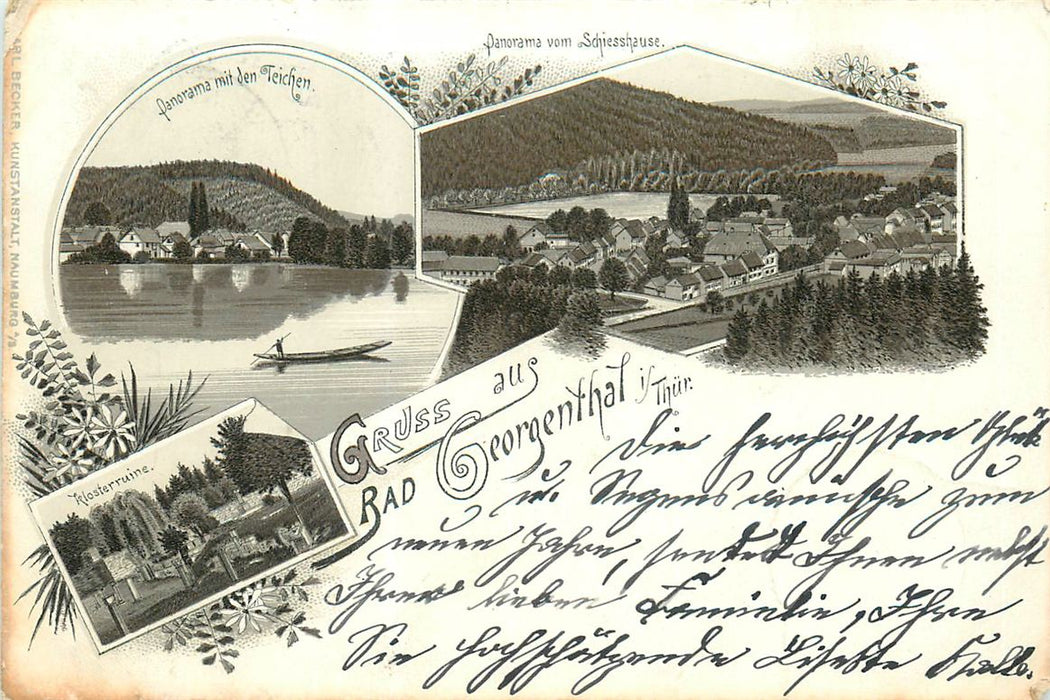 Panorama mit den Teichen.
Panorama vom Schiesshause.
Klosterruine.
Gruss aus
Bad Georgenthal i/Thür.
KARL BECKER, KUNSTANSTALT, NAUMBURG a/S
Die herzlichsten Glück
u. Segenswünsche zum
neuen Jahre, sendet Ihnen nebst
Ihrer lieben Familie, Ihre
Sie hochschätzende Lisette Kalb.